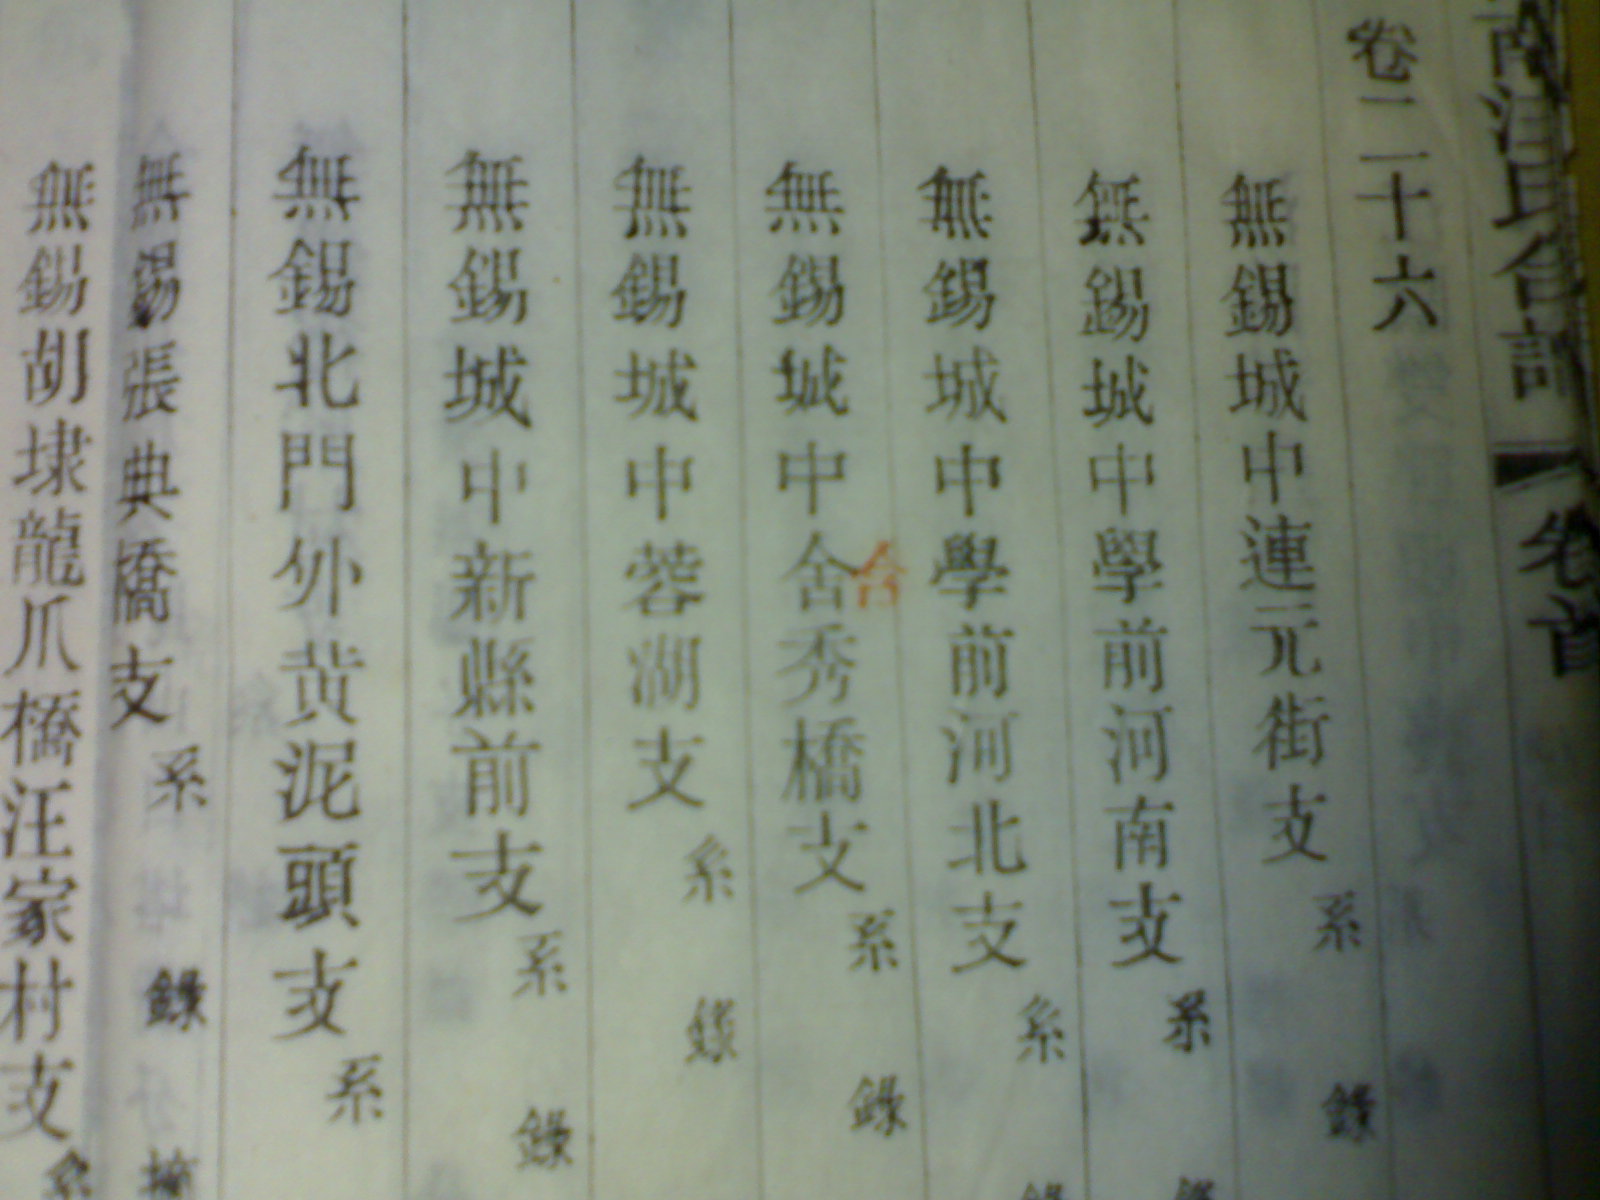 汪氏合譜 卷首
卷二十六
無錫城中連元街支 系 錄
無錫城中學前河南支 系 錄
無錫城中學前河北支 系 錄
無錫城中舍秀橋支 系 錄
合
無錫城中蓉湖支 系 錄
無錫城中新縣前支 系 錄
無錫北門外黃泥頭支 系
無錫張典橋支 系 錄
無錫胡埭龍爪橋汪家村支 系